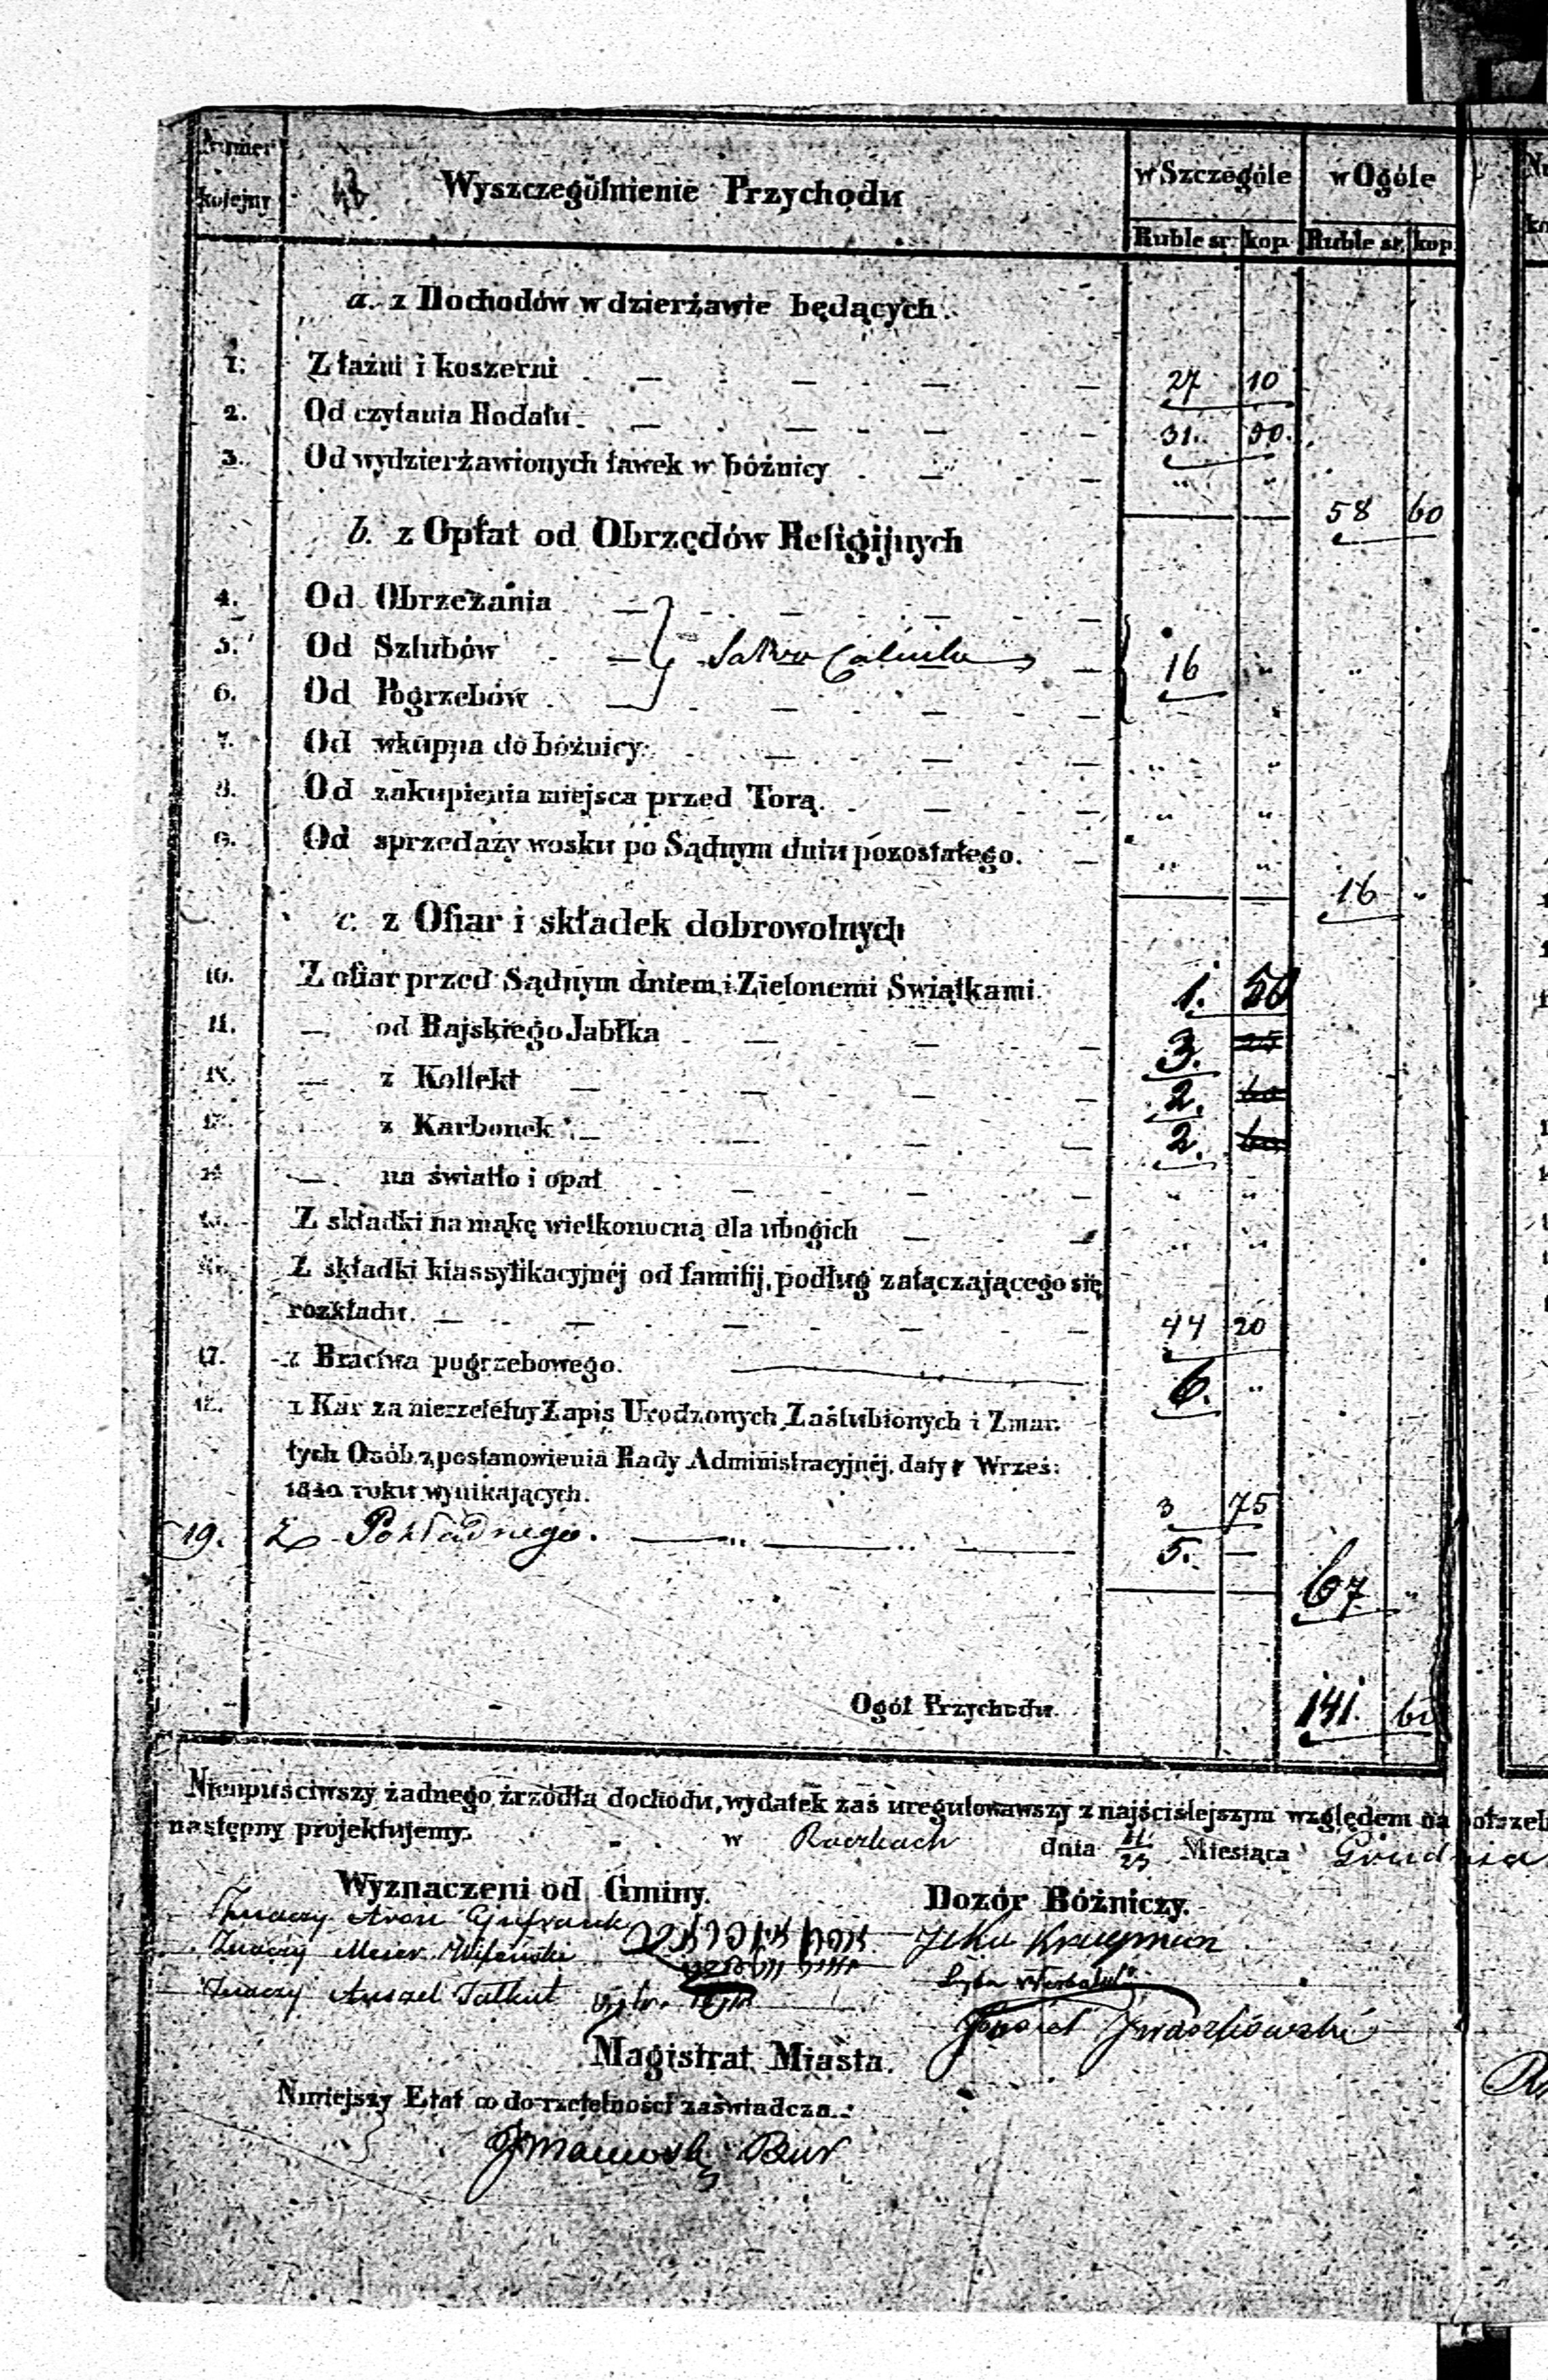 Numer kolejny
Wyszczególnienie Przychodu
w Szczególe
w Ogóle
Ruble sr. kop. Ruble sr. kop.
a. z Dochodów w dzierżawie będących.
1. Z łaźni i koszerni 27 10
2. Od czytania Rodału 31. 50.
3. Od wydzierżawionych ławek w bóżnicy „ „
58 60
b. z Opłat od Obrzędów Religijnych
4. Od Obrzezania
5. Od Szlubów Salvo Calculo 16 „ „
6. Od Pogrzebów
7. Od wkupna do bóżnicy „ „
8. Od zakupienia miejsca przed Torą. „ „
9. Od sprzedaży wosku po Sądnym dniu pozostałego. „ „
16 „
c. z Ofiar i składek dobrowolnych
10. Z ofiar przed Sądnym dniem i Zielonemi Swiątkami 1. 50
11. — od Rajskiego Jabłka 3. 25
12. — z Kollekt 2. 60
13. z Karbonek 2.
14. — na światło i opał „ „
15. Z składki na mąkę wielkonocną dla ubogich „ „
16. Z składki klassyfikacyjnéj od familij, podług załączającego się
rozkładu. 44 20
17. z Bractwa pogrzebowego. 6. „
18. z Kar za nierzetelny Zapis Urodzonych Zaślubionych i Zmar-
łych Osób z postanowienia Rady Administracyjnéj, daty Wrześ:
1840 roku wynikających. 3 75
19. Z Pokładnego. 5. —
67 „
Ogół Przychodu. 141. 60
Nieupuściwszy żadnego źrzódła dochodu, wydatek zaś uregulowawszy z najściślejszym względem na potrzeb
następny projektujemy. w Raczkach dnia 11/23 Miesiąca Grudnia
Wyznaczeni od Gminy.
Dozór Bóżniczy.
Znaczy Aron
Znaczy Meier
Znaczy Anszel
Magistrat Miasta.
Niniejszy Etat co do rzetelności zaświadcza.